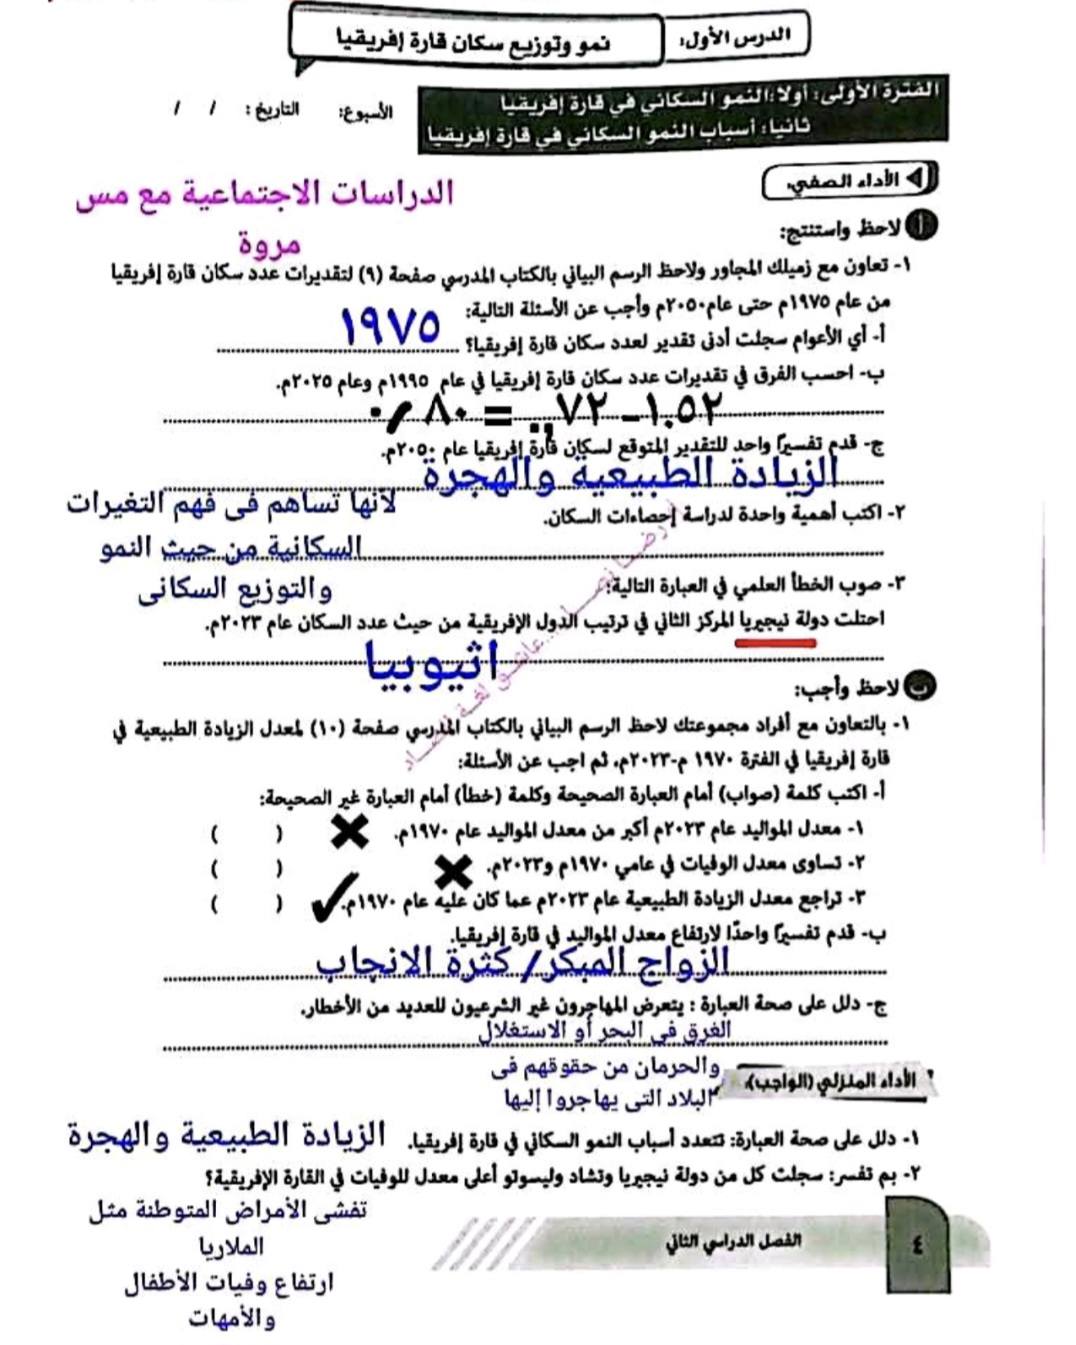 الدرس الأول:
نمو وتوزيع سكان قارة إفريقيا
الفترة الأولى: أولا: النمو السكاني في قارة إفريقيا
ثانيا: أسباب النمو السكاني في قارة إفريقيا
الأسبوع: التاريخ: / /
الأداء الصفي:
الدراسات الاجتماعية مع مس
مروة
أ لاحظ واستنتج:
١- تعاون مع زميلك المجاور ولاحظ الرسم البياني بالكتاب المدرسي صفحة (٩) لتقديرات عدد سكان قارة إفريقيا
من عام ١٩٧٥م حتى عام ٢٠٥٠م وأجب عن الأسئلة التالية:
أ- أي الأعوام سجلت أدنى تقدير لعدد سكان قارة إفريقيا؟ ١٩٧٥
ب- احسب الفرق في تقديرات عدد سكان قارة إفريقيا في عام ١٩٩٥م وعام ٢٠٢٥م.
١.٥٢ – ٧٢,. = ٨٠,٠
ج- قدم تفسيرًا واحد للتقدير المتوقع لسكان قارة إفريقيا عام ٢٠٥٠م.
الزيادة الطبيعية والهجرة
٢- اكتب أهمية واحدة لدراسة إحصاءات السكان.
لأنها تساهم فى فهم التغيرات
السكانية من حيث النمو
والتوزيع السكانى
٣- صوب الخطأ العلمي في العبارة التالية:
احتلت دولة نيجيريا المركز الثاني في ترتيب الدول الإفريقية من حيث عدد السكان عام ٢٠٢٣م.
اثيوبيا
ب لاحظ وأجب:
١- بالتعاون مع أفراد مجموعتك لاحظ الرسم البياني بالكتاب المدرسي صفحة (١٠) لمعدل الزيادة الطبيعية في
قارة إفريقيا في الفترة ١٩٧٠ م-٢٠٢٣م، ثم اجب عن الأسئلة:
أ- اكتب كلمة (صواب) أمام العبارة الصحيحة وكلمة (خطأ) أمام العبارة غير الصحيحة:
١- معدل المواليد عام ٢٠٢٣م أكبر من معدل المواليد عام ١٩٧٠م. ( )
٢- تساوى معدل الوفيات في عامي ١٩٧٠م و٢٠٢٣م. ( )
٣- تراجع معدل الزيادة الطبيعية عام ٢٠٢٣م عما كان عليه عام ١٩٧٠م. ( )
ب- قدم تفسيرًا واحدًا لارتفاع معدل المواليد في قارة إفريقيا.
الزواج المبكر/ كثرة الانجاب
ج- دلل على صحة العبارة : يتعرض المهاجرون غير الشرعيون للعديد من الأخطار.
الغرق فى البحر أو الاستغلال
والحرمان من حقوقهم فى
البلاد التى يهاجروا إليها
الأداء المنزلي (الواجب):
١- دلل على صحة العبارة: تتعدد أسباب النمو السكاني في قارة إفريقيا. الزيادة الطبيعية والهجرة
٢- بم تفسر: سجلت كل من دولة نيجيريا وتشاد وليسوتو أعلى معدل للوفيات في القارة الإفريقية؟
تفشى الأمراض المتوطنة مثل
الملاريا
ارتفاع وفيات الأطفال
والأمهات
الفصل الدراسي الثاني
٤